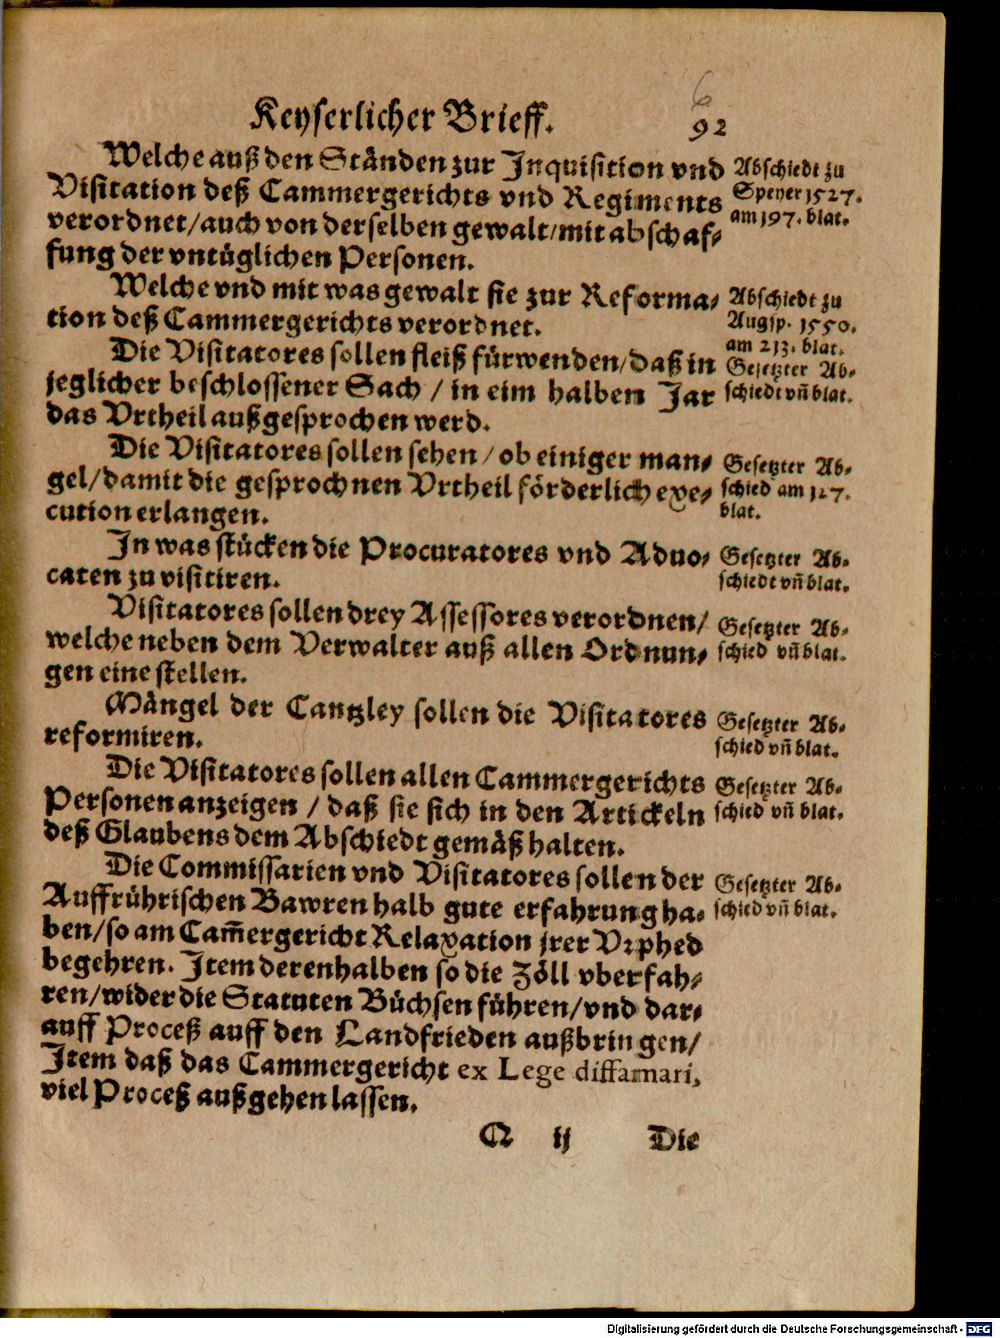 6
Keyserlicher Brieff.
92
Welche auß den Ständen zur Inquisition vnd
Visitation deß Cammergerichts vnd Regiments
verordnet/auch von derselben gewalt/mit abschaf-
fung der vntüglichen Personen.
Abschiedt zu
Speyer 1527.
am 197. blat.
Welche vnd mit was gewalt sie zur Reforma-
tion deß Cammergerichts verordnet.
Abschiedt zu
Augsp. 1550.
am 213. blat.
Die Visitatores sollen fleiß fürwenden/daß in
jeglicher beschlossener Sach / in eim halben Jar
das Vrtheil außgesprochen werd.
Gesetzter Ab-
schiedt vñ blat.
Die Visitatores sollen sehen / ob einiger man-
gel/damit die gesprochnen Vrtheil förderlich exe-
cution erlangen.
Gesetzter Ab-
schied am 127.
blat.
In was stücken die Procuratores vnd Aduo-
caten zu visitiren.
Gesetzter Ab-
schiedt vñ blat.
Visitatores sollen drey Assessores verordnen/
welche neben dem Verwalter auß allen Ordnun-
gen eine stellen.
Gesetzter Ab-
schied vñ blat.
Mängel der Cantzley sollen die Visitatores
reformiren.
Gesetzter Ab-
schied vñ blat.
Die Visitatores sollen allen Cammergerichts
Personen anzeigen / daß sie sich in den Artickeln
deß Glaubens dem Abschiedt gemäß halten.
Gesetzter Ab-
schied vñ blat.
Die Commissarien vnd Visitatores sollen der
Auffrührischen Bawren halb gute erfahrung ha-
ben/so am Cam̃ergericht Relaxation jrer Vrphed
begehren. Item derenhalben so die Zöll vberfah-
ren/wider die Statuten Büchsen führen/vnd dar-
auff Proceß auff den Landfrieden außbringen/
Item daß das Cammergericht ex Lege diffamari,
viel Proceß außgehen lassen.
Gesetzter Ab-
schied vñ blat.
Q ij Die
Digitalisierung gefördert durch die Deutsche Forschungsgemeinschaft - DFG